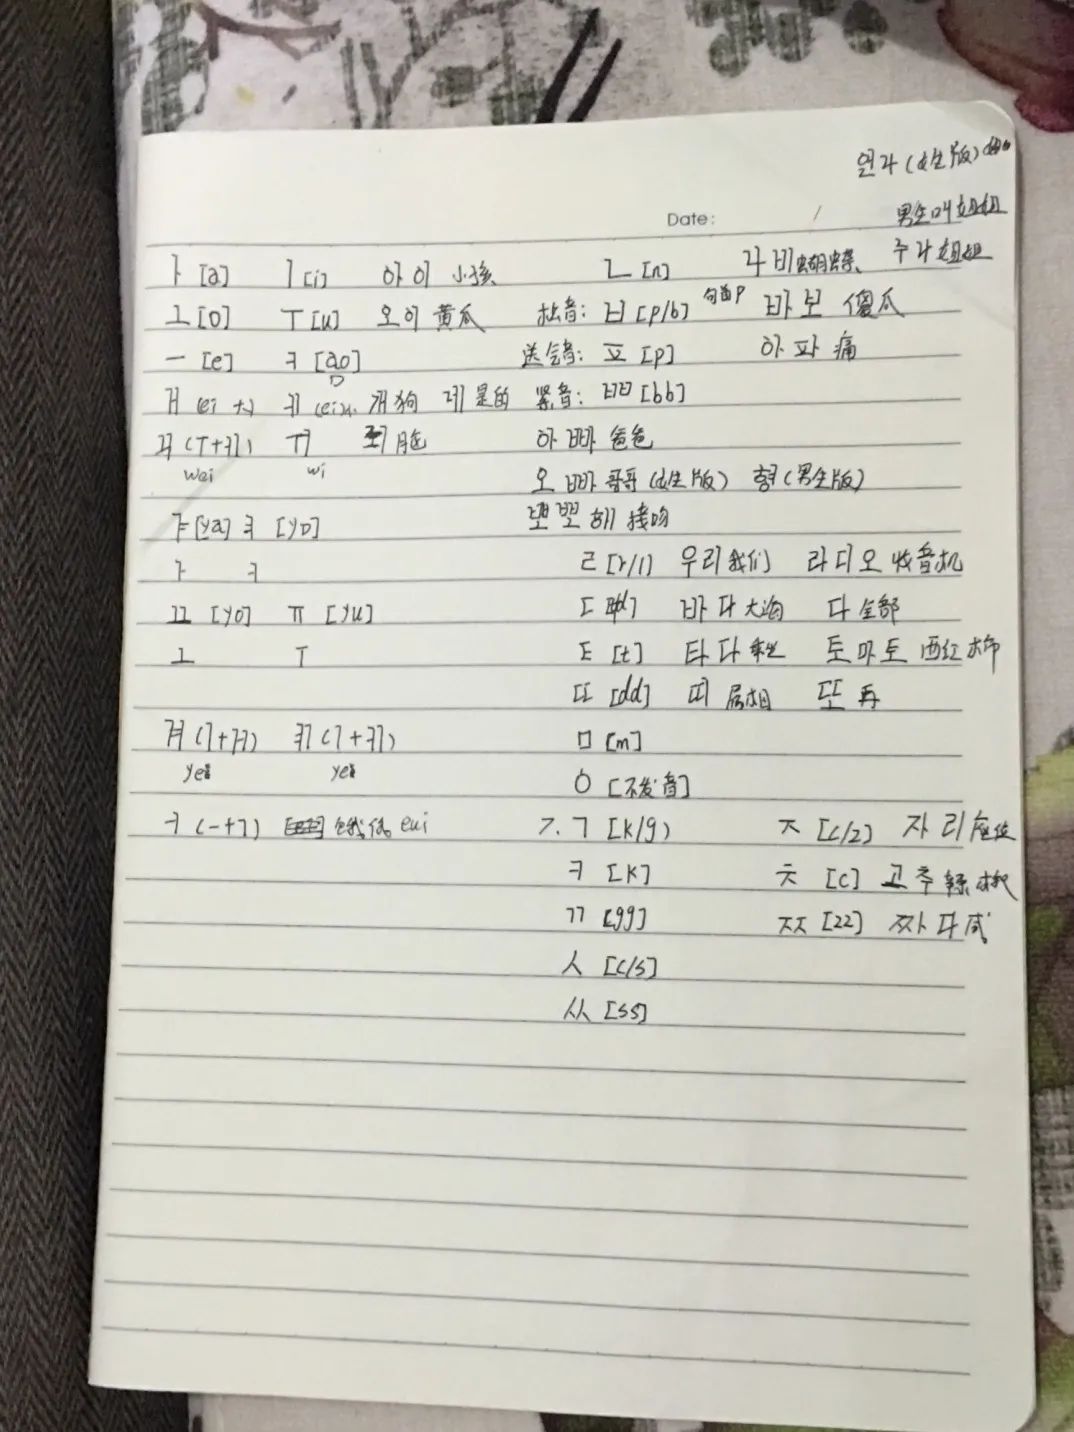 언니 (女生版)
男生叫姐姐
Date:
누나 姐姐
ㅏ [a] ㅣ [i] 아이 小孩 ㄴ [n] 나비 蝴蝶
ㅗ [o] ㅜ [u] 오이 黄瓜 拙音: ㅂ [p/b] 句首p 바보 傻瓜
ㅡ [e] ㅓ [ao] 送气音: ㅍ [p] 아파 痛
ㅐ (ei 大) ㅔ (ei 小) 개 狗 네 是的 紧音: ㅃ [bb]
ㅞ (ㅜ+ㅔ) ㅟ 뇌 脑 아빠 爸爸
wei wi
오빠 哥哥 (女生版) 형 (男生版)
ㅑ [ya] ㅕ [yo] 뽀뽀해 接吻
ㅏ ㅓ ㄹ [r/l] 우리 我们 라디오 收音机
ㅛ [yo] ㅠ [yu] ㄷ 바다 大海 다 全部
ㅗ ㅜ ㅌ [t] 타다 乘坐 토마토 西红柿
ㄸ [dd] 띠 属相 또 再
ㅒ (ㅣ+ㅐ) ㅖ (ㅣ+ㅔ) ㅁ [m]
ye ye
ㅇ [不发音]
ㅢ (ㅡ+ㅣ) eui 7. ㄱ [k/g) ㅈ [c/z] 자리 座位
ㅋ [k] ㅊ [c] 고추 辣椒
ㄲ [gg] ㅉ [zz] 짜다 咸
ㅅ [c/s]
ㅆ [ss]